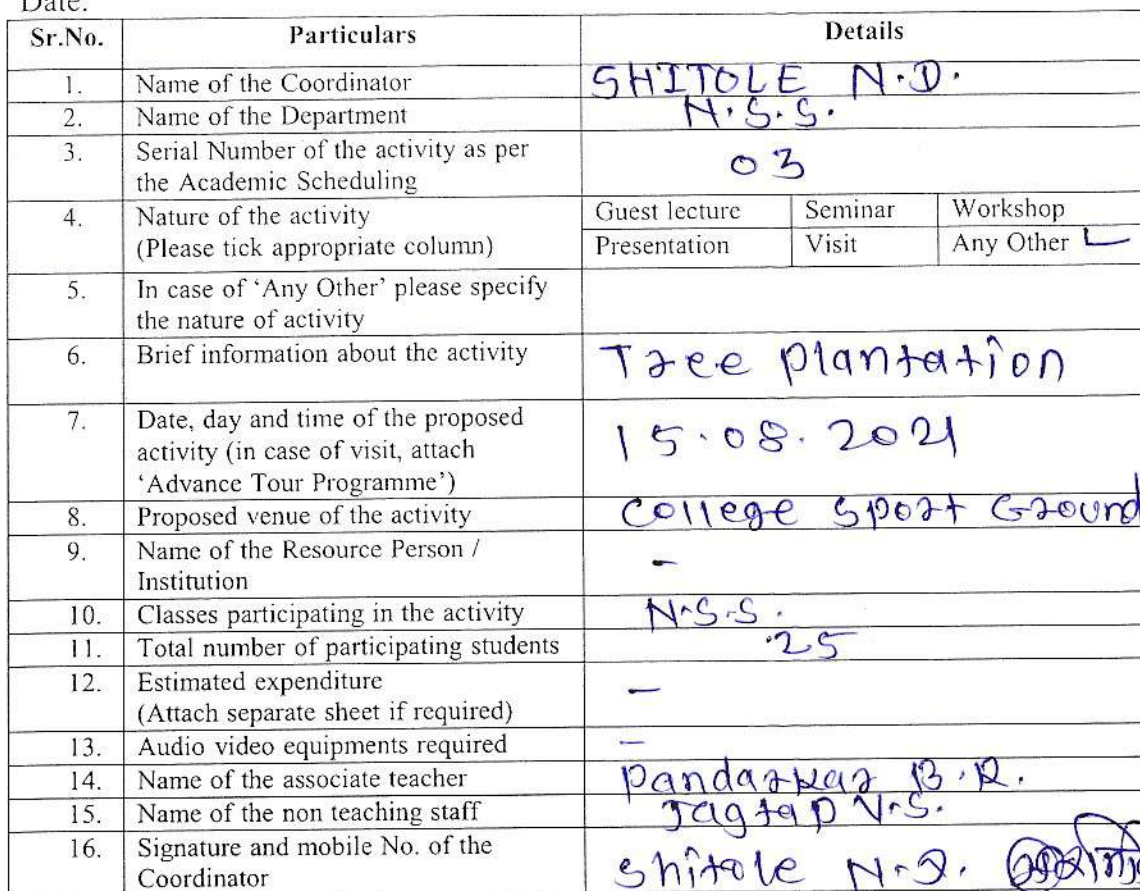 Date:
Sr.No. Particulars Details
1. Name of the Coordinator SHITOLE N.D.
2. Name of the Department N.S.S.
3. Serial Number of the activity as per
the Academic Scheduling 03
4. Nature of the activity Guest lecture Seminar Workshop
(Please tick appropriate column) Presentation Visit Any Other
5. In case of ‘Any Other’ please specify
the nature of activity
6. Brief information about the activity Tree plantation
7. Date, day and time of the proposed
activity (in case of visit, attach 15.08.2021
‘Advance Tour Programme’)
8. Proposed venue of the activity College sport Ground
9. Name of the Resource Person / -
Institution
10. Classes participating in the activity N.S.S.
11. Total number of participating students 25
12. Estimated expenditure -
(Attach separate sheet if required)
13. Audio video equipments required -
14. Name of the associate teacher Pandarkar B.R.
15. Name of the non teaching staff Jagtap V.S.
16. Signature and mobile No. of the
Coordinator Shitole N.D.